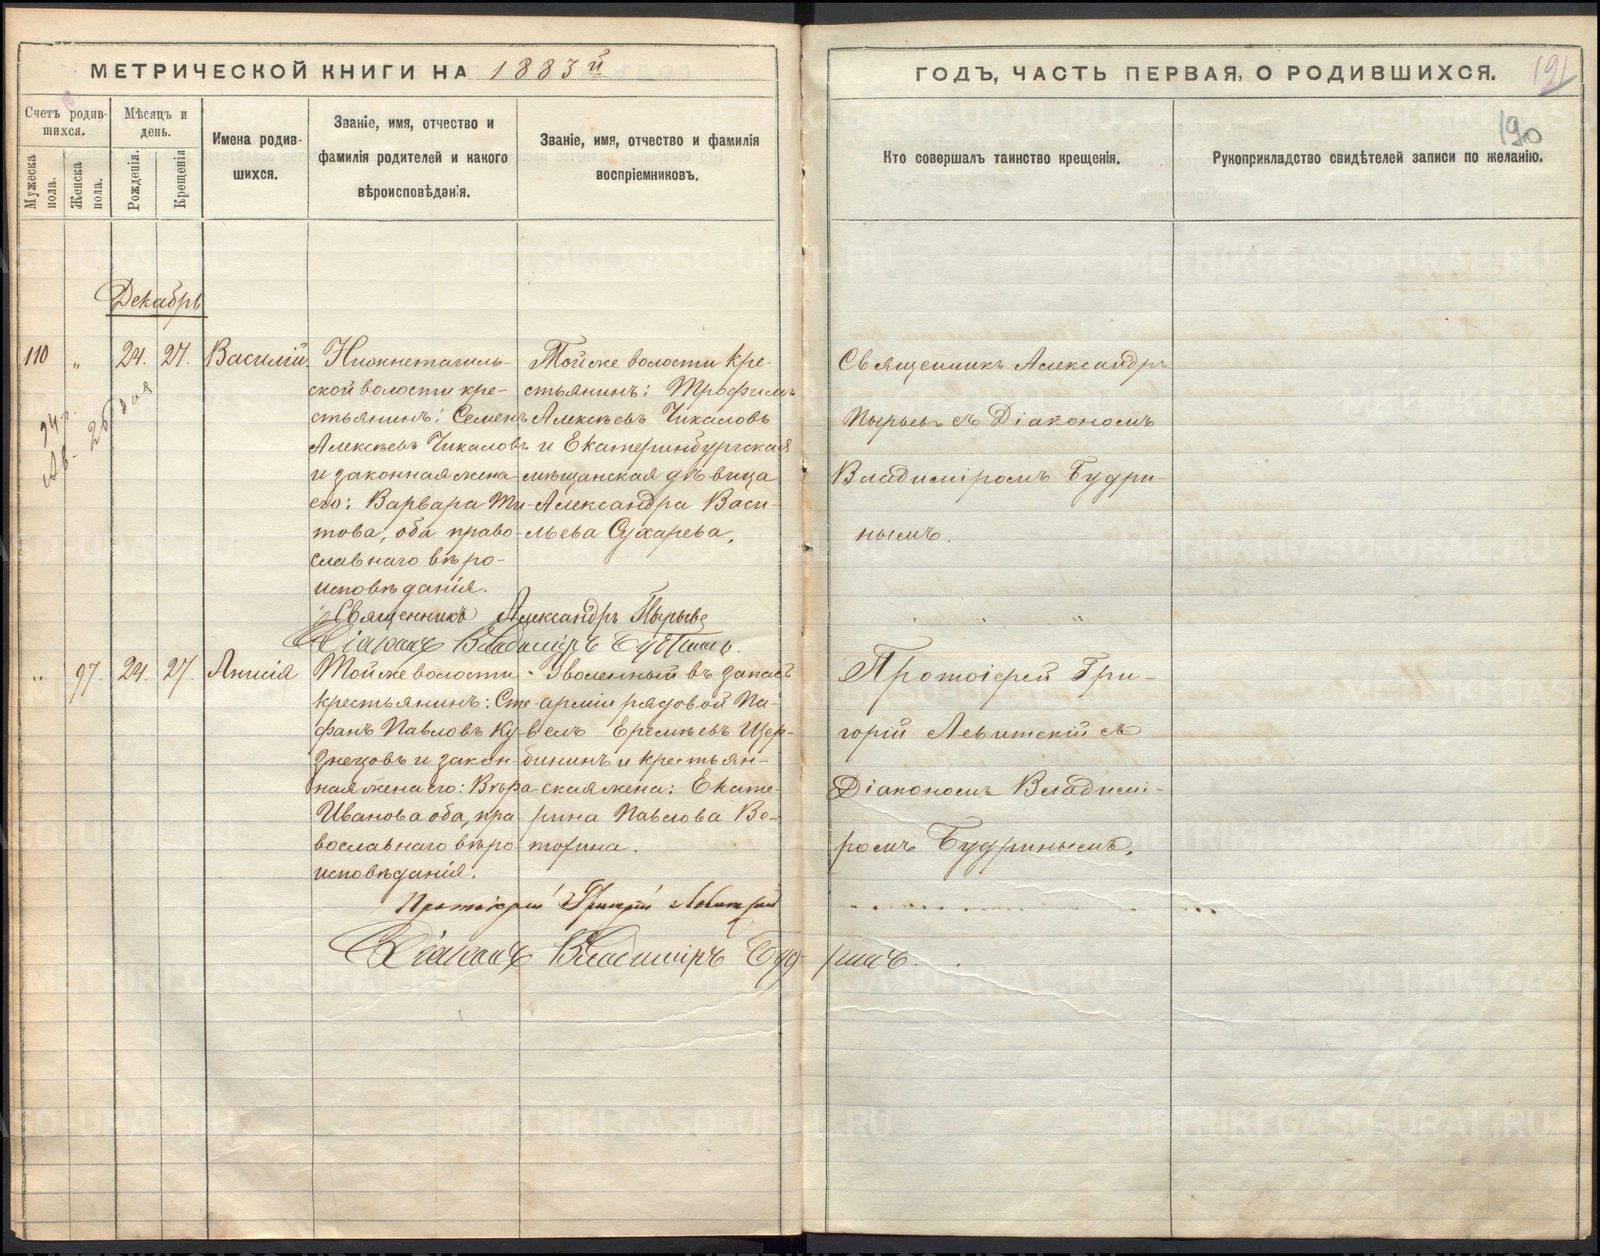 МЕТРИЧЕСКОЙ КНИГИ НА 1883й
ГОДЪ, ЧАСТЬ ПЕРВАЯ, О РОДИВШИХСЯ.
191
190
Счетъ родив-
шихся.
Мужеска
пола.
Женска
пола.
Мѣсяцъ и
день.
Рожденія.
Крещенія
Имена родив-
шихся.
Званіе, имя, отчество и
фамилія родителей и какого
вѣроисповѣданія.
Званіе, имя, отчество и фамилія
воспріемниковъ.
Кто совершалъ таинство крещенія.
Рукоприкладство свидѣтелей записи по желанію.
Декабрь
110 „ 24. 27. Василій.
Нижнетагиль-
ской волости кре-
стьянинъ: Семенъ
Алексѣевъ Чикаловъ
и законная жена
его: Варвара Ти-
това, оба право-
славнаго вѣро-
исповѣданія.
Тойже волости кре-
стьянинъ: Трофимъ
Алексѣевъ Чикаловъ
и Екатеринбургская
мѣщанская дѣвица
Александра Васи-
льева Сухарева.
Священникъ Александръ
Пырьевъ съ Діакономъ
Владиміромъ Будри-
нымъ.
Священникъ Александръ Пырьевъ
Діаконъ Владиміръ Будринъ.
„ 97. 24. 27. Анисія
Тойже волости
крестьянинъ: Сте-
фанъ Павловъ Ку-
знецовъ и закон-
ная жена его: Вѣра
Иванова оба, пра-
вославнаго вѣро-
исповѣданія.
Уволенный въ запасъ
арміи рядовой Па-
велъ Еремѣевъ Щер-
бининъ и крестьян-
ская жена: Екате-
рина Павлова Во-
торина.
Протоіерей Гри-
горій Левитскій съ
Діакономъ Владимі-
ромъ Будринымъ.
Протоіерей Григорій Левитскій
Діаконъ Владиміръ Будринъ.